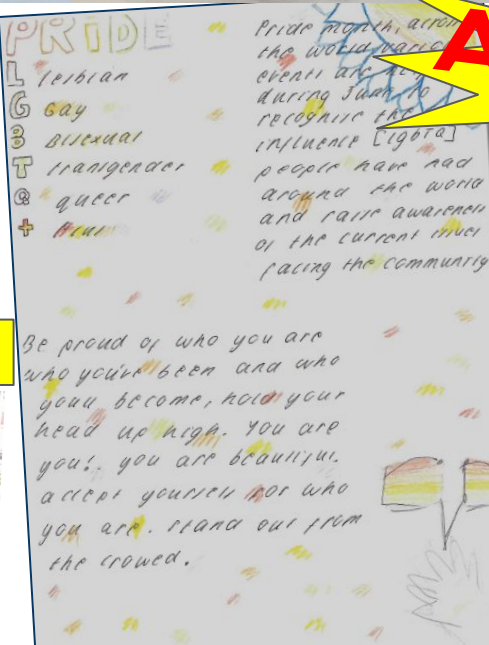 PRIDE
L lesbian
G Gay
B Bisexual
T transgender
Q queer
+ Plus
Pride month,
the world
events are
during June to
recognise the
influence [lgbta]
people have had
around the world
and raise awareness
of the current issues
facing the community
Be proud of who you are
who you've been and who
youll become, hold your
head up high. You are
you!. you are beautiful.
accept yourself for who
you are. stand out from
the crowed.
A